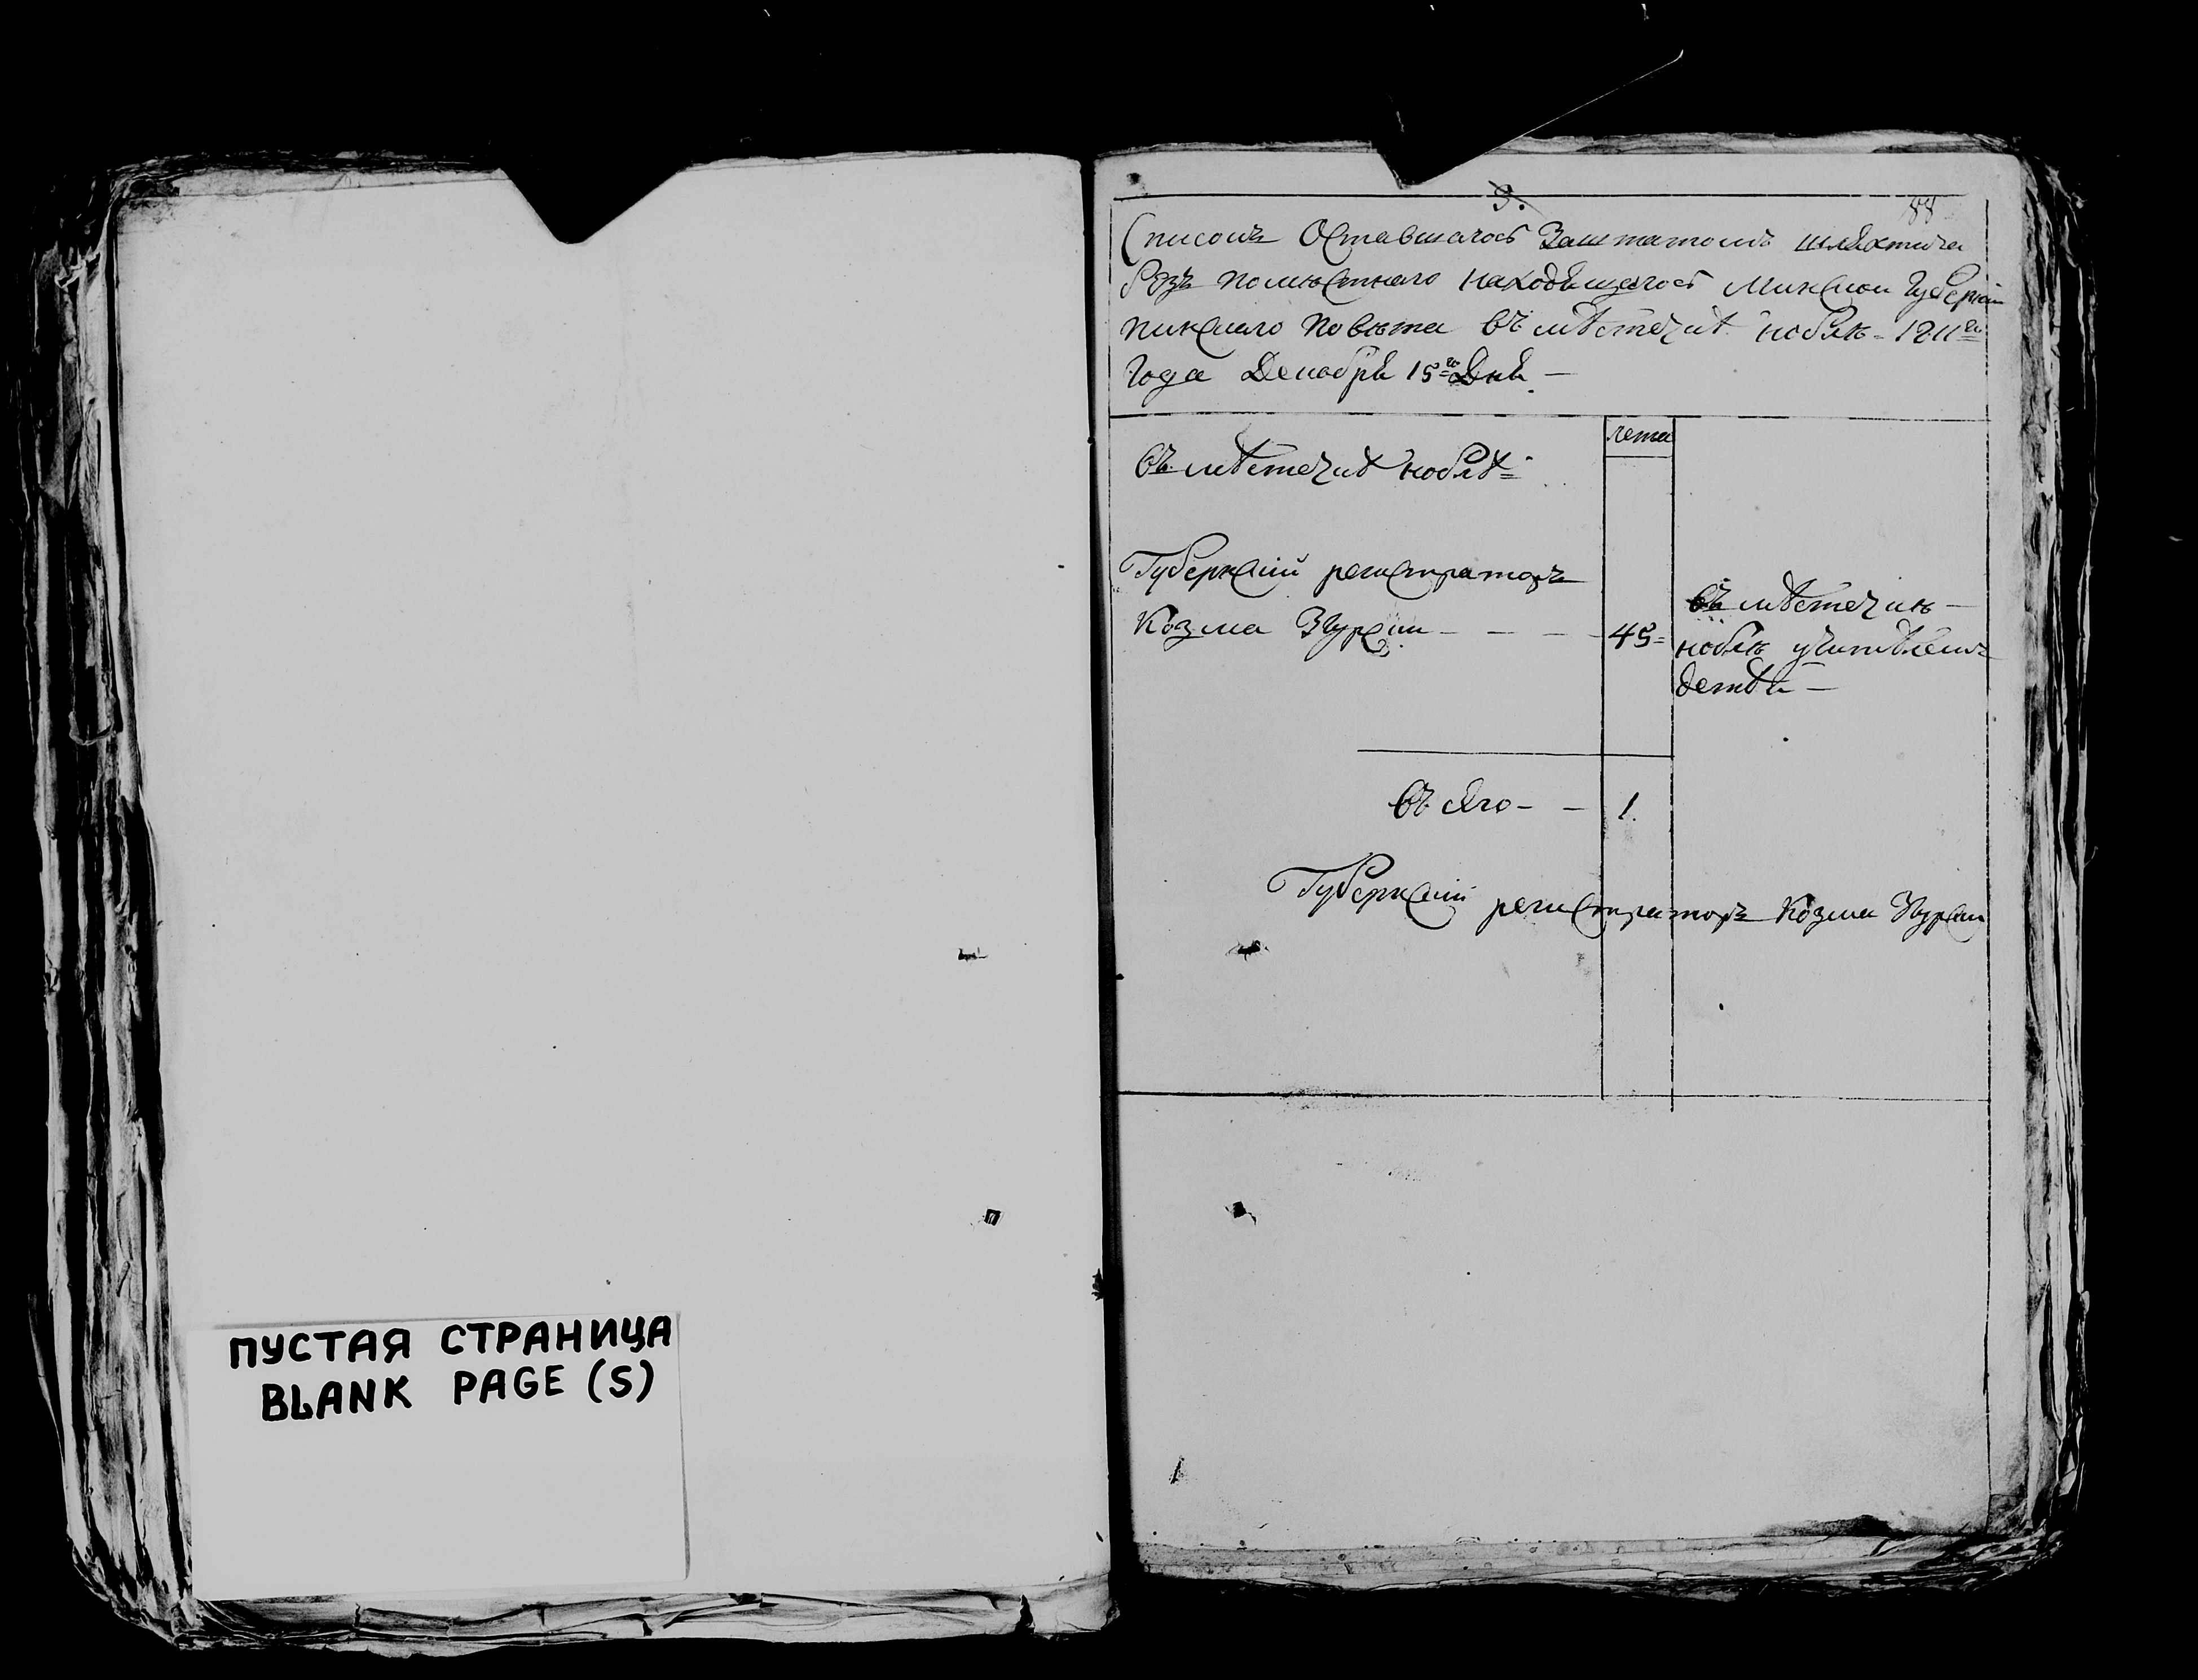 ПУСТАЯ СТРАНИЦА
BLANK PAGE (S)
3.
88
Списокъ Оставшагось Заштатомъ шляхтича
безъ помѣстнаго находящегось Минской Губерніи
пинскаго Повѣта въ мѣстечкѣ нобѣлѣ 1811го
Года Декабря 15го Дня —
въ мѣстечкѣ нобѣлѣ
лета
Губернскій регистраторъ
Козма - - - 45
въ мѣстечкѣ —
нобѣлѣ учителемъ
детѣй —
въ сяго - - 1.
Губернскій регистраторъ Козма